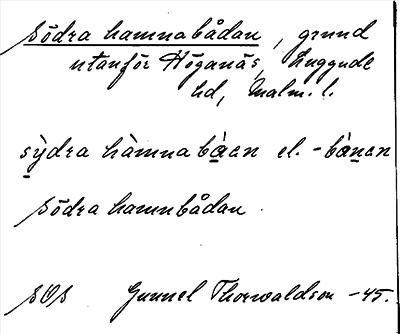 Södra hamnabådan, grund
utanför Höganäs, Luggude
hd, Malm. l.
sỳdra hàmnabàan el. -bànan
Södra hamnbådan.
SOS Gunnel Thorwaldson -45.